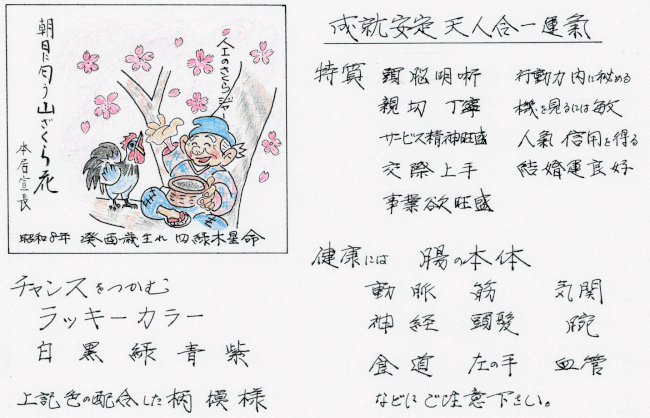 朝日に匂う山ざくら花
本居宣長
全上のさくらジャ
昭和8年 癸酉歳生れ 四緑木星命
チャンスをつかむ
ラッキーカラー
白 黒 緑 青 紫
上記色の配合した柄模様
成就安定 天人合一運氣
特質 頭脳明晰 行動力内に秘める
親切 丁寧 機を見るには敏
サービス精神旺盛 人氣 信用を得る
交際上手 結婚運良好
事業欲旺盛
健康には 腸の本体
動脈 筋 気関
神経 頭髪 腕
食道 左の手 血管
などにご注意下さい。